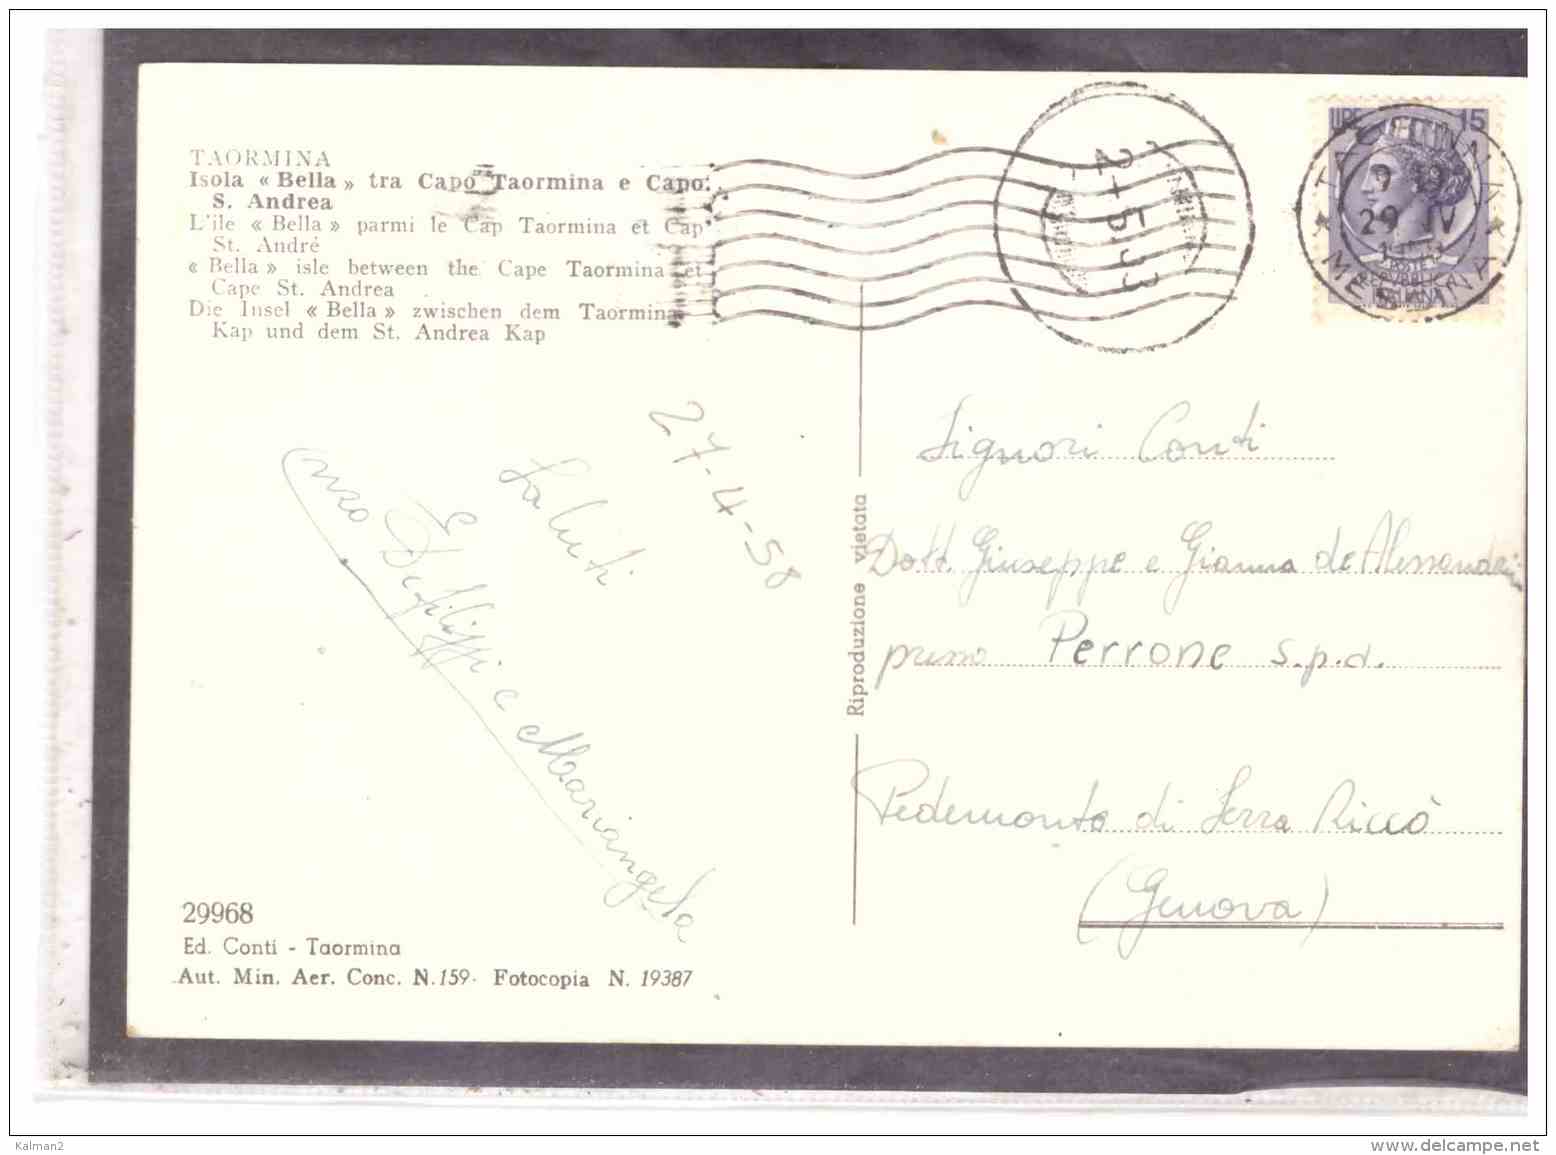 TAORMINA
Isola « Bella » tra Capo Taormina e Capo
S. Andrea
L'ile « Bella » parmi le Cap Taormina et Cap
St. André
« Bella » isle between the Cape Taormina et
Cape St. Andrea
Die Insel « Bella » zwischen dem Taormina
Kap und dem St. Andrea Kap
LIRE 15
TAORMINA
9
29 IV
MESSINA
27-4-58
Saluti
Enzo De Filippi e Mariangela
Riproduzione vietata
Signori Conti
Dott. Giuseppe e Gianna de Alessandri
presso Perrone s.p.d.
Pedemonte di Serra Riccò
(Genova)
29968
Ed. Conti - Taormina
Aut. Min. Aer. Conc. N. 159 - Fotocopia N. 19387
Kalman2
www.delcampe.net